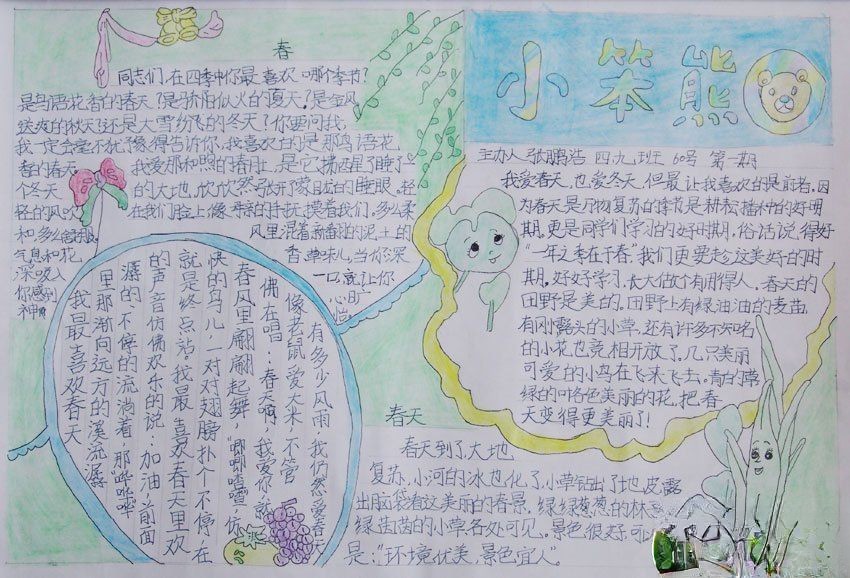 春
同志们,在四季中你最喜欢哪个季节?
是鸟语花香的春天?是骄阳似火的夏天?是金风
送爽的秋天?还是大雪纷飞的冬天?你要问我,
我一定会毫不犹豫得告诉你,我喜欢的是那鸟语花
香的春天。我爱那和照的春阳,是它揣醒了睡了
个冬天的大地,欣欣然张开了朦胧的睡眼。轻
轻的风吹在我们脸上,像母亲的手抚摸着我们。多么柔
和,多么舒服,风里混着新翻的泥土的
气息和花香、草味儿,当你深
深吸入一口,就让你
你感到心旷
神怡
小笨熊
主办人 张鹏浩 四、九班 60号 第一期
我爱春天,也爱冬天,但最让我喜欢的是前者,因
为春天是万物复苏的季节是耕耘播种的好时
期,更是同学们学习的好时期。俗话说得好
"一年之季在于春"我们更要趁这美好的时
期。好好学习,长大做个有用得人。春天的
田野是美的。田野上有绿油油的麦苗,
有刚露头的小草,还有许多不知名
的小花也竞相开放了。几只美丽
可爱的小鸟在飞来飞去。青的草
绿的叶各色美丽的花,把春
天变得更美丽了!
我最喜欢春天
里那渐向远方的溪流,潺
潺的、不停的流淌着,那"哗哗"
的声音仿佛欢乐的说:加油,前面
就是终点站,我最喜欢春天里欢
快的鸟儿,一对对翅膀扑个不停,在
春风里翩翩起舞,"唧唧喳喳",仿
佛在唱:春天啊,我爱你,就
像老鼠爱大米,不管
有多少风雨,我仍然爱春天
春天
春天到了,大地
复苏,小河的冰也化了,小草钻出了地皮,露
出脑袋看这美丽的春景,绿绿葱葱的林
绿油油的小草,各处可见。景色很好,可
是:"环境优美,景色宜人"。